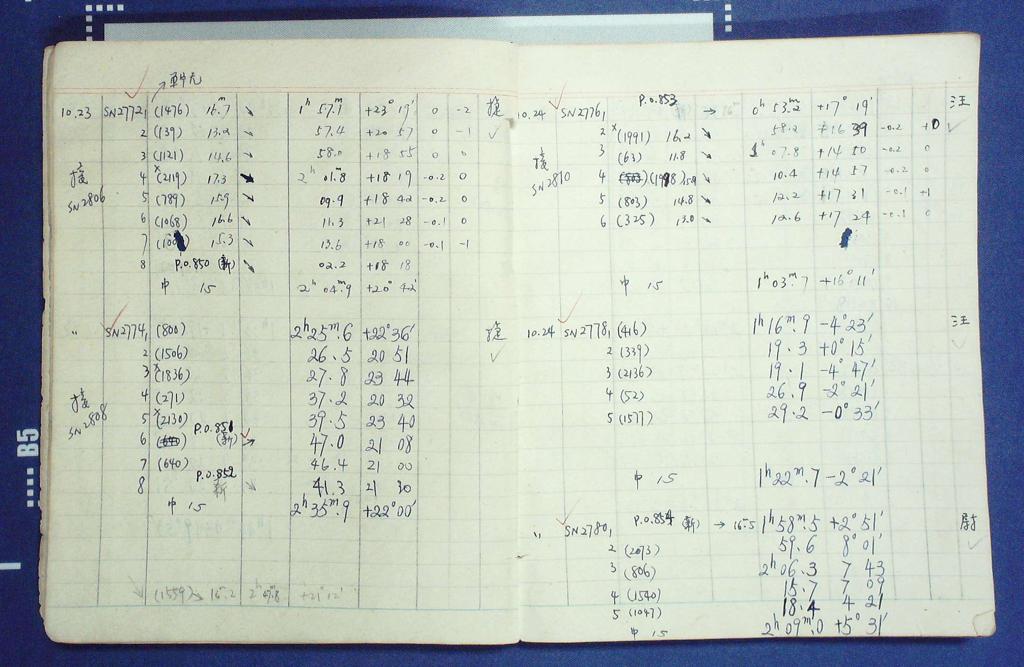 10.23 SN2772, 1 (1476) 15.7 ↘ 1h 57.m7 +23° 19' 0 -2
2 (139) 13.2 ↘ 57.4 +20 57 0 -1
3 (1121) 14.6 ↘ 58.0 +18 55 0 0
接 4 ×(2119) 17.3 ↘ 2h 01.8 +18 19 -0.2 0
SN2806 5 (789) 15.9 ↘ 09.9 +18 42 -0.2 0
6 (1068) 16.6 ↘ 11.3 +21 28 -0.1 0
7 15.3 ↘ 13.6 +18 00 -0.1 -1
8 P.O.850 (新) ↘ 02.2 +18 18
中 15 2h 04m.9 +20° 42'
" SN2774, 1 (800) 2h25m.6 +22°36'
2 (1506) 26.5 20 51
3 ×(1836) 27.8 23 44
接 4 (271) 37.2 20 32
SN2808 5 ×(2130) 39.5 23 40
6 P.O.851 (新) → 47.0 21 08
7 (640) 46.4 21 00
8 P.O.852 新 ↘ 41.3 21 30
中 15 2h35m.9 +22°00'
(1559) 16.2 2h 07m.8 +21° 12'
10.24 SN2776, 1 P.O.853 → 0h 53m.2 +17° 19' 汪
2 ×(1991) 16.2 ↘ 58.2 +16 39 -0.2 +0
接 3 (63) 11.8 ↘ 1h 07.8 +14 50 -0.2 0
SN2810 4 ↘ 10.4 +14 57 -0.2 0
5 (803) 14.8 ↘ 12.2 +17 31 -0.1 +1
6 (325) 13.0 ↘ 12.6 +17 24 -0.1 0
中 15 1h03m.7 +16° 11'
10.24 SN2778, 1 (416) 1h16m.9 -4°23' 汪
2 (339) 19.3 +0° 15'
3 (2136) 19.1 -4° 47'
4 (52) 26.9 -2° 21'
5 (1577) 29.2 -0° 33'
中 15 1h22m.7 -2°21'
" SN2780, 1 P.O.854 (新) → 16.5 1h58m.5 +2° 51' 尉
2 (2073) 59.6 8° 01'
3 (806) 2h 06.3 7 43
4 (1540) 15.7 7 09
5 (1047) 18.4 4 21
中 15 2h 09m.0 +5° 31'
B5